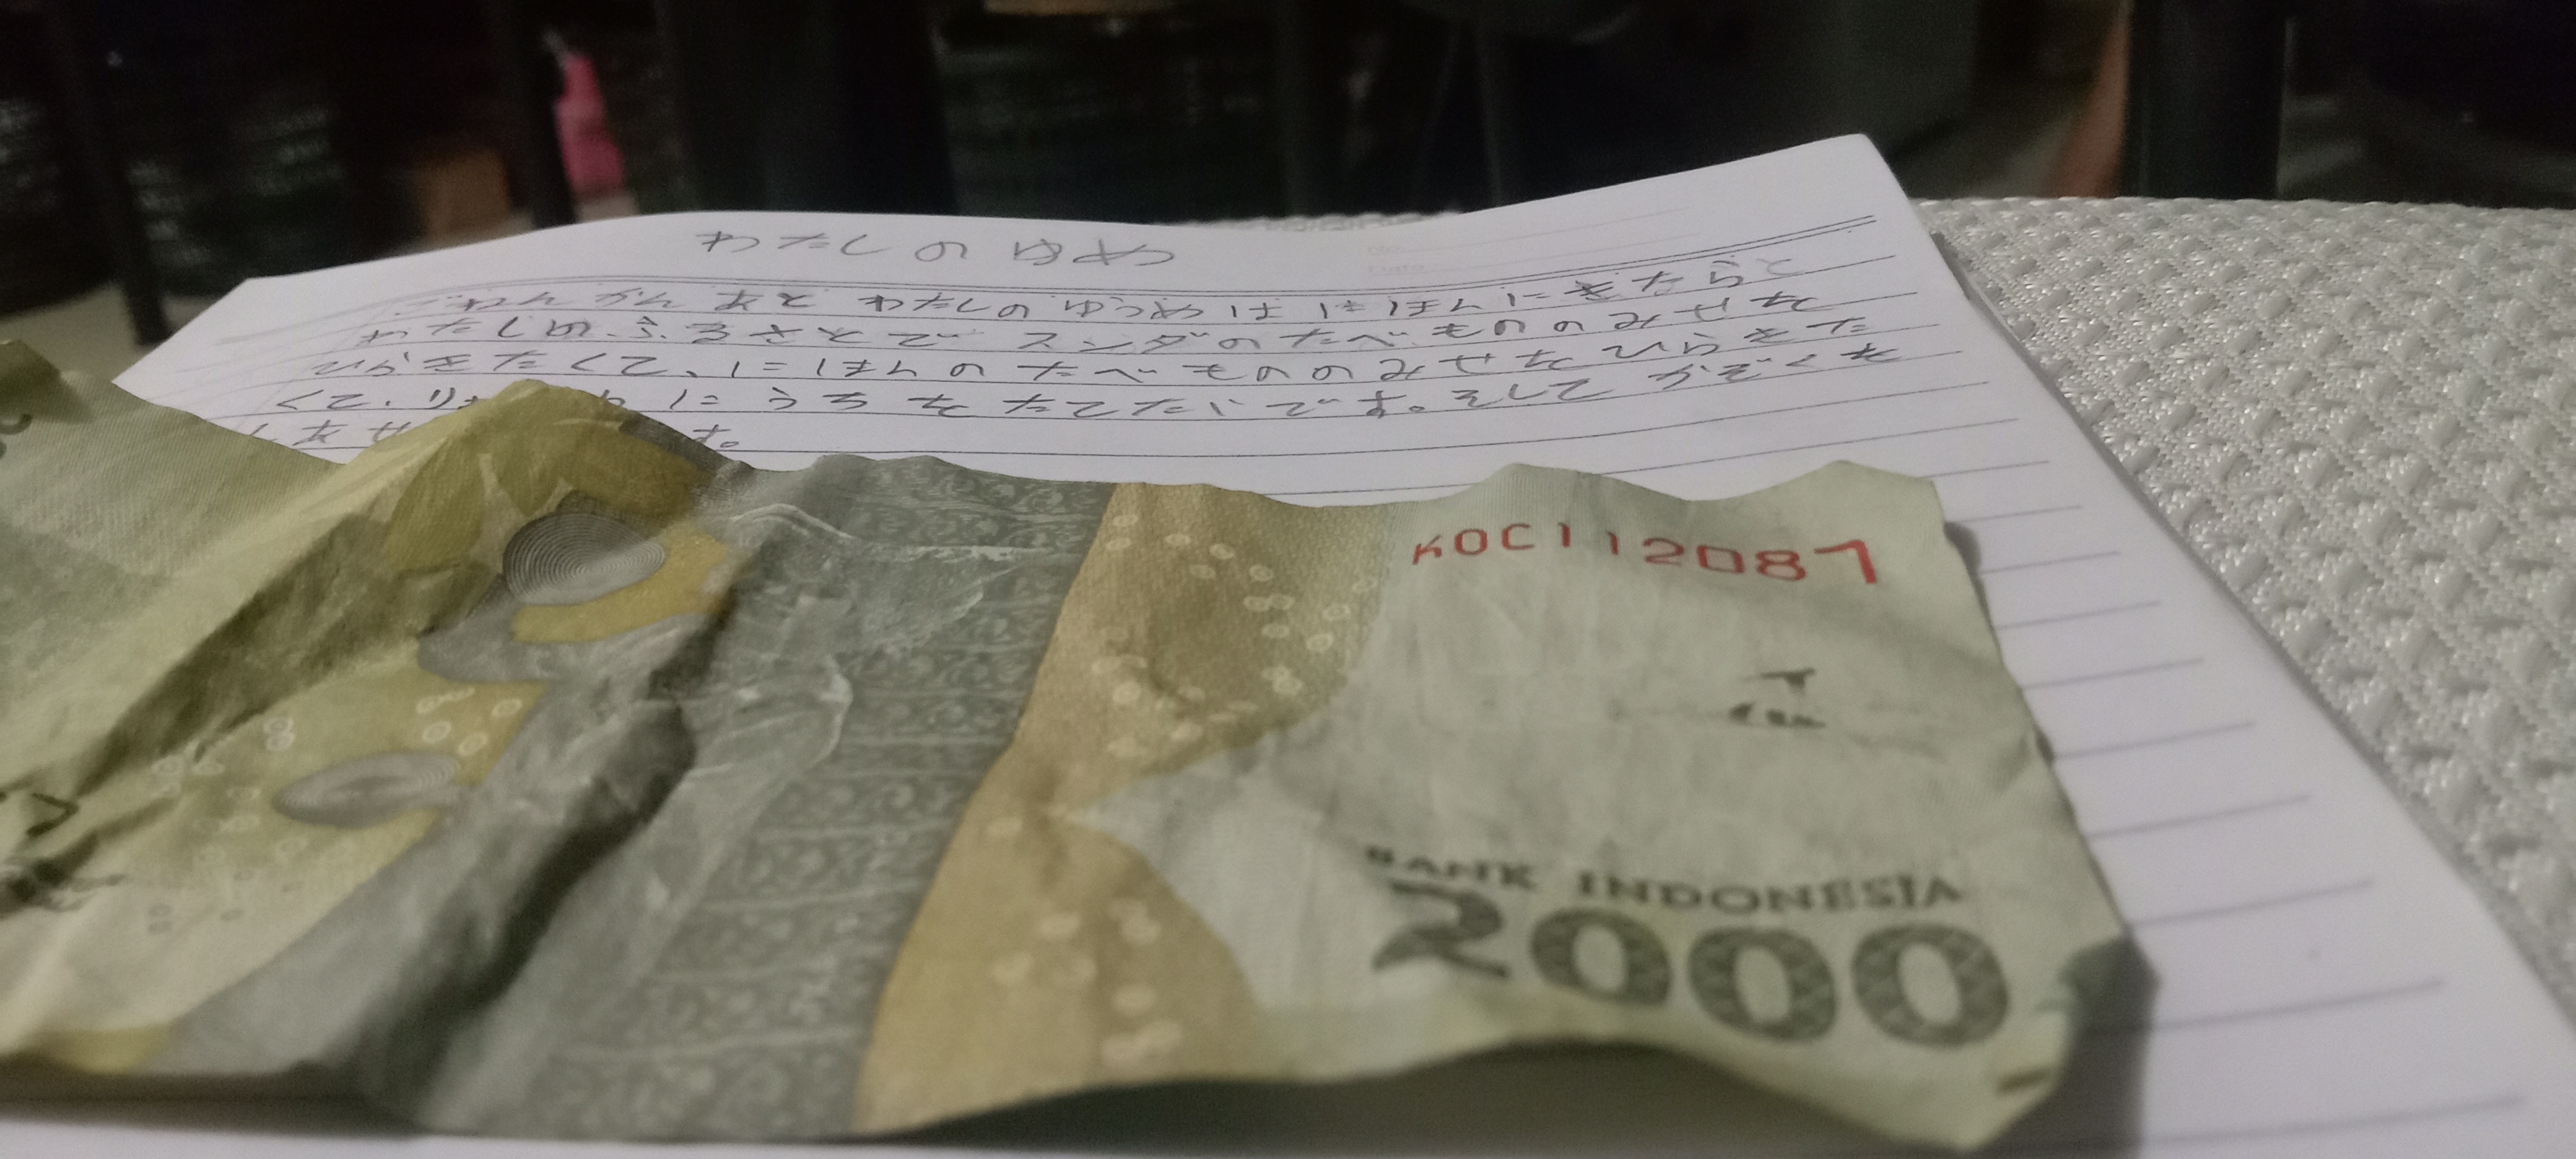 わたしのゆめ
ごねんかんあと わたしのゆうめは にほんにきたらと
わたしの ふるさとで スンダのたべもののみせを
ひらきたくて、にほんのたべもののみせを ひらきた
くて、 に うちを たてたいです。そして かぞくを
あせ す。
KOC112087
BANK INDONESIA
2000